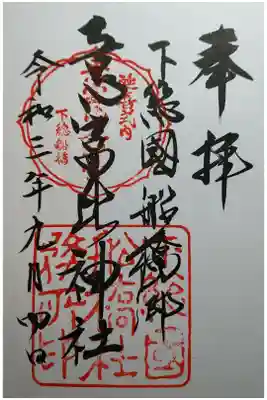 奉拝
下総國船橋郷
意富比神社
令和三年九月四日
延喜式内
下総船橋